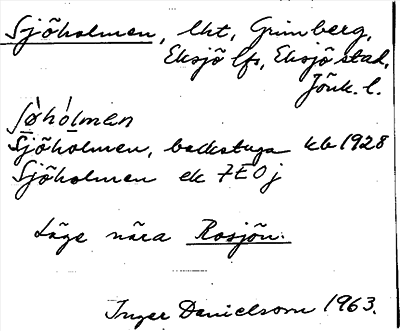 Sjöholmen, lht, Grimberg,
Eksjö lfs, Eksjö stad,
Jönk. l.
ʃø̀hólmen
Sjöholmen, backstuga kb 1928
Sjöholmen ek 7E0j
Läge nära Rosjön.
Inger Danielsson 1963.